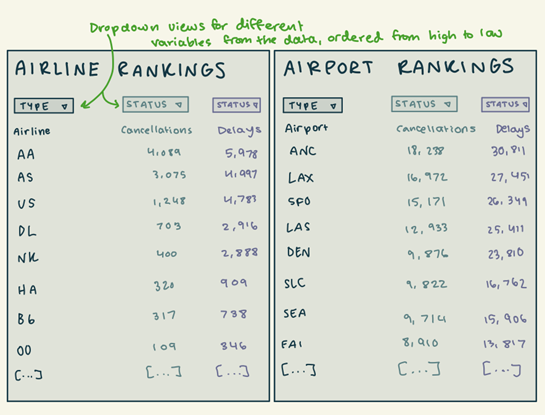 Dropdown views for different
variables from the data, ordered from high to low
AIRLINE RANKINGS
TYPE ▽ STATUS ▽ STATUS ▽
Airline Cancellations Delays
AA 4,089 5,978
AS 3,075 4,997
US 1,248 4,783
DL 703 2,916
NK 400 2,888
HA 320 909
B6 317 738
OO 109 346
[...] [...] [...]
AIRPORT RANKINGS
TYPE ▽ STATUS ▽ STATUS ▽
Airport Cancellations Delays
ANC 18,238 30,811
LAX 16,972 27,451
SFO 15,171 26,349
LAS 12,933 25,411
DEN 9,876 23,810
SLC 9,822 16,762
SEA 9,714 15,906
FAI 8,910 13,817
[...] [...] [...]